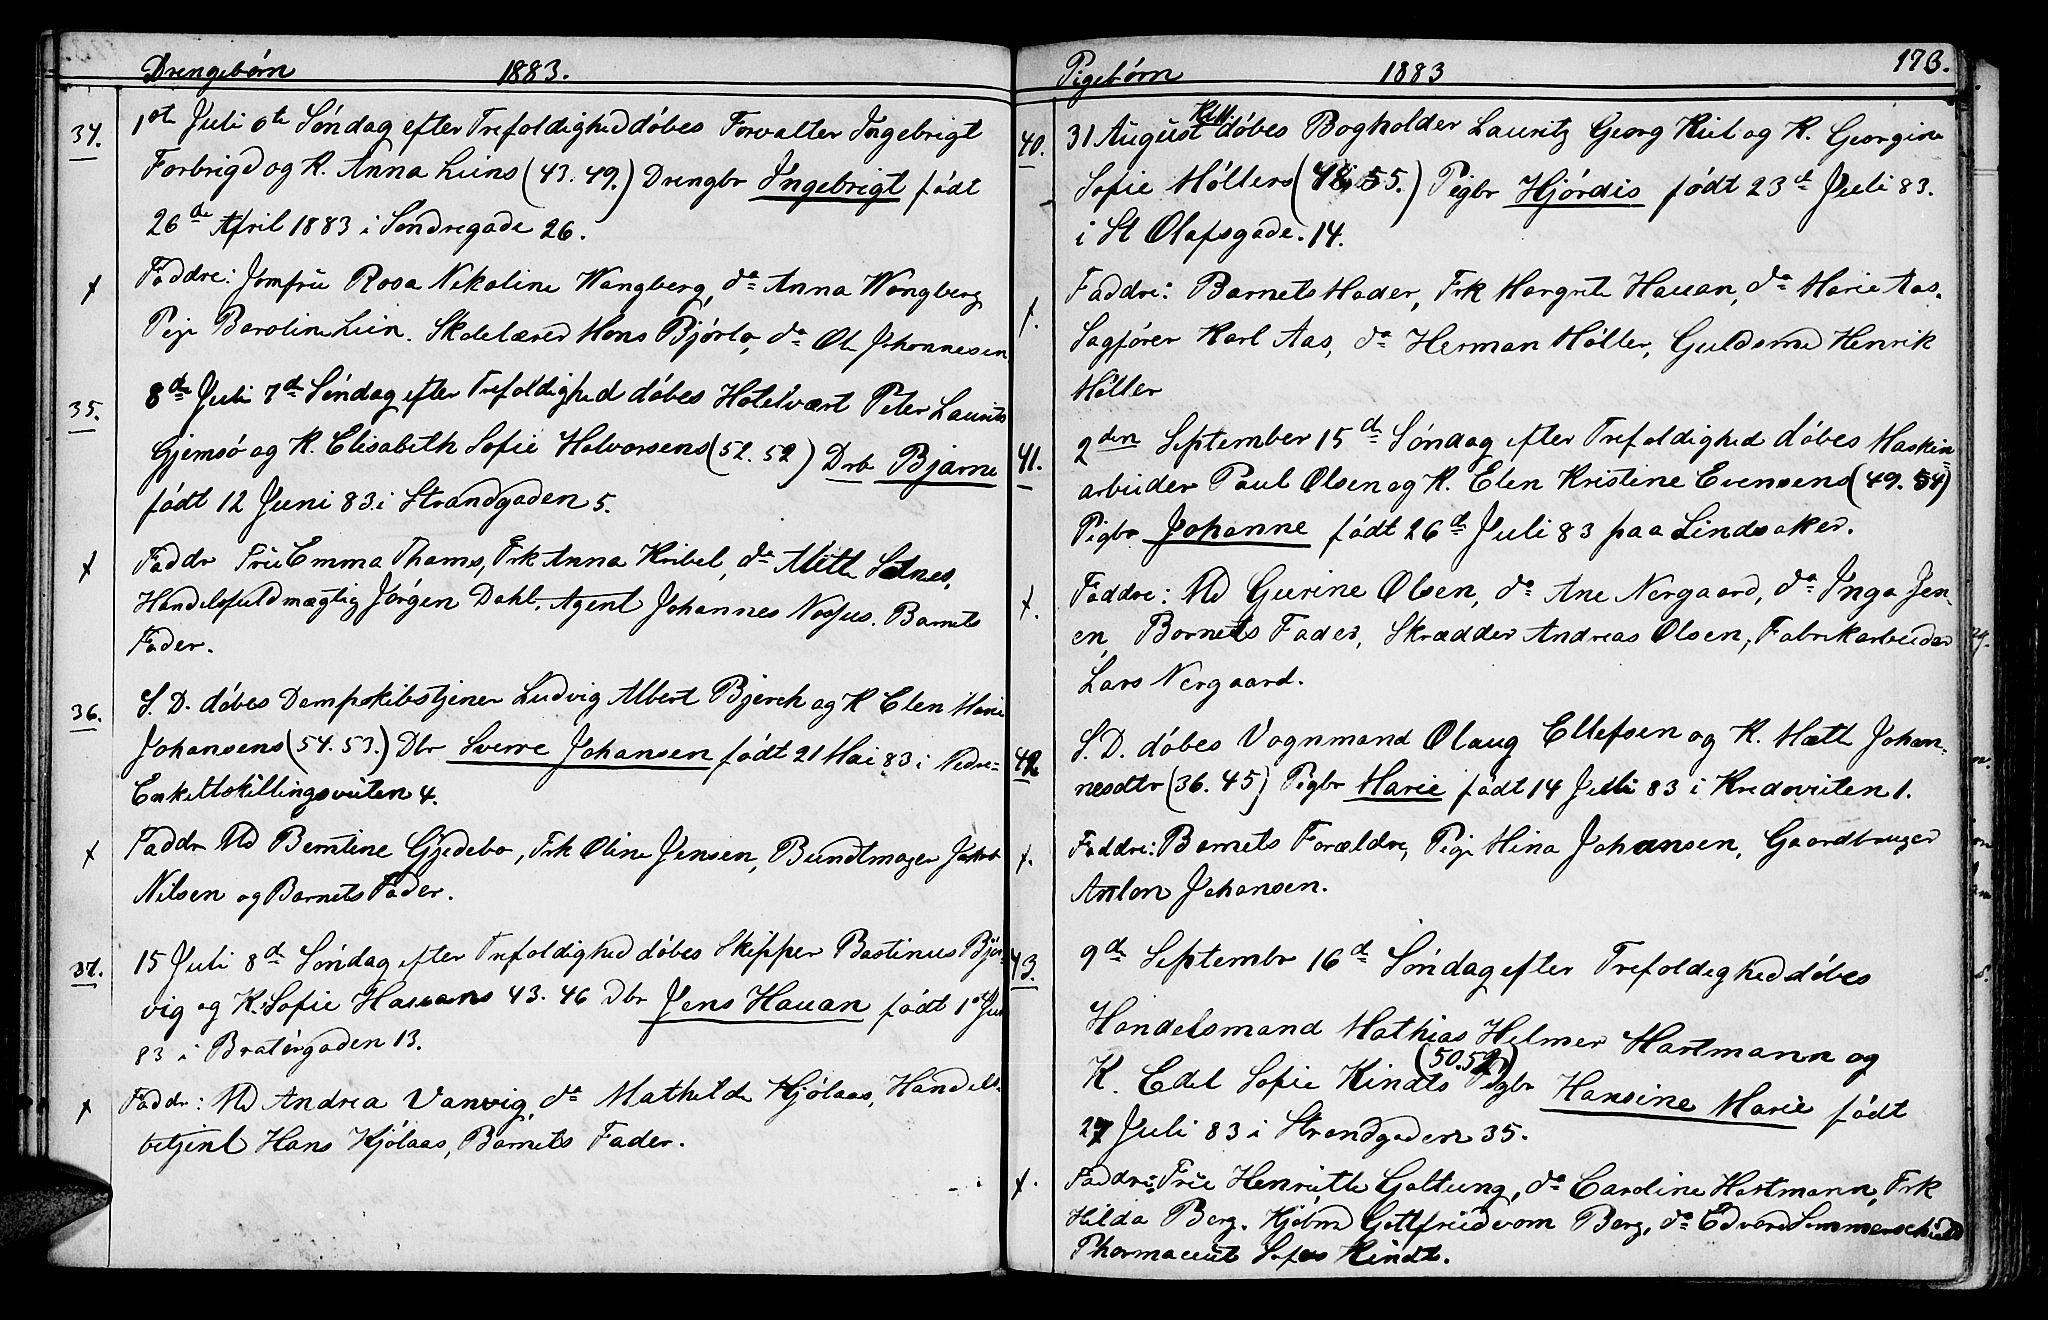 Drengebørn 1883.
34. 1ste Juli 6te Søndag efter Trefoldighed døbes Forvalter Ingebrigt
Forbrigd og K. Anna Liens (43. 49.) Drengbr Ingebrigt født
26de April 1883 i Søndregade 26.
x Faddre: Jomfru Rosa Nikoline Wangberg, do Anna Wangberg
Pige Lien. Skolelærer Hans Bjørlo, do Ole Johannesen
35. 8de Juli 7de Søndag efter Trefoldighed døbes Hotelvært Peter Laurits
Gjemsø og K. Elisabeth Sofie Halvorsens (52. 52) Drb Bjarne
født 12 Juni 83 i Strandgaden 5.
x Faddr Frue Emma Thams, Frk Anna Kribel, do Mette Selnes,
Handelsfuldmægtig Jørgen Dahl, Agent Johannes Barnets
Fader.
36. S. D. døbes Dampskibstjener Ludvig Albert Bjerck og K Elen Marie
Johansens (54. 53.) Dbr Sverre Johansen født 21 Mai 83 i Nedre=
Enkeltskillingsveiten 4.
x Faddr Md Berntine Gjedebo, Frk Oline Jensen, Bundtmager Jakob
Nilsen og Barnets Fader.
37. 15 Juli 8de Søndag efter Trefoldighed døbes Skipper Bastinus Bjør-
vig og K. Sofie Hauans 43. 46 Dbr Jens Hauan født 1ste Ju
83 i Bratørgaden 13.
x Faddr: Md Andrea Vanvig, do Mathilde Kjølaas, Handels-
betjent Hans Kjølaas, Barnets Fader.
Pigebørn 1883 173.
40. 31 August døbes Bogholder Lauritz Georg Kiel og K. Georgine
Sofie Møllers (48, 55.) Pigbr Hjørdis født 23de Juli 83.
i St Olafsgade. 14.
x. Faddre: Barnets Moder, Frk Margrete Hauan, do Marie Aas.
Sagfører Karl Aas, do Herman Møller, Guldsmed Henrik
Møller
41. 2den September 15de Søndag efter Trefoldighed døbes Maskin=
arbeider Paul Olsen og K. Elen Kristine Evensens (49. 54)
Pigbr Johanne født 26de Juli 83 paa Lindsaker.
x. Faddre: Md Gurine Olsen, do Ane Nergaard, do Inga Jen-
en, Barnets Fader, Skrædder Andreas Olsen, Fabrikarbeider
Lars Nergaard.
42. S. D. døbes Vognmand Olaug Ellefsen og K. Mette Johan-
nesdtr (36. 45) Pigbr Marie født 14 Juli 83 i 1.
x. Faddre: Barnets Forældre, Pige Mina Johansen, Gaardbruger
Anton Johansen.
43. 9de Septembr 16de Søndag efter Trefoldighed døbes
Handelsmand Mathias Helmer Hartmann og
K. Edel Sofie Kindts (50. 52) Pigbr Hansine Marie født
27 Juli 83 i Strandgaden 35.
x. Faddre: Frue Henriette Galtung, do Caroline Hartmann, Frk
Hilda Berg. Kjøbmd Gottfried vom Berg, do Edvard Sommerschield
Pharmaceut Sofus Kindt.